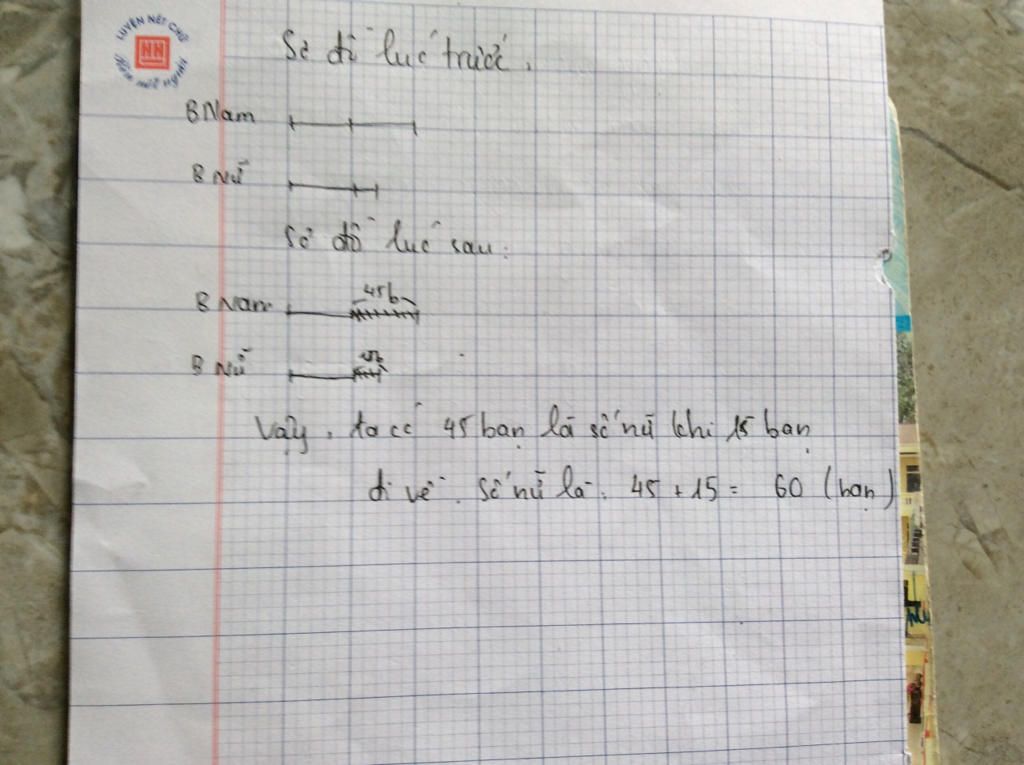 LUYỆN NÉT CHỮ
NN
Rèn nết người
Sơ đồ lúc trước.
B Nam
B nữ
Sơ đồ lúc sau:
45b
B Nam
15b
B Nữ
Vậy, ta có 45 bạn là số nữ khi 15 bạn
đi về. Số nữ là: 45 + 15 = 60 (bạn)